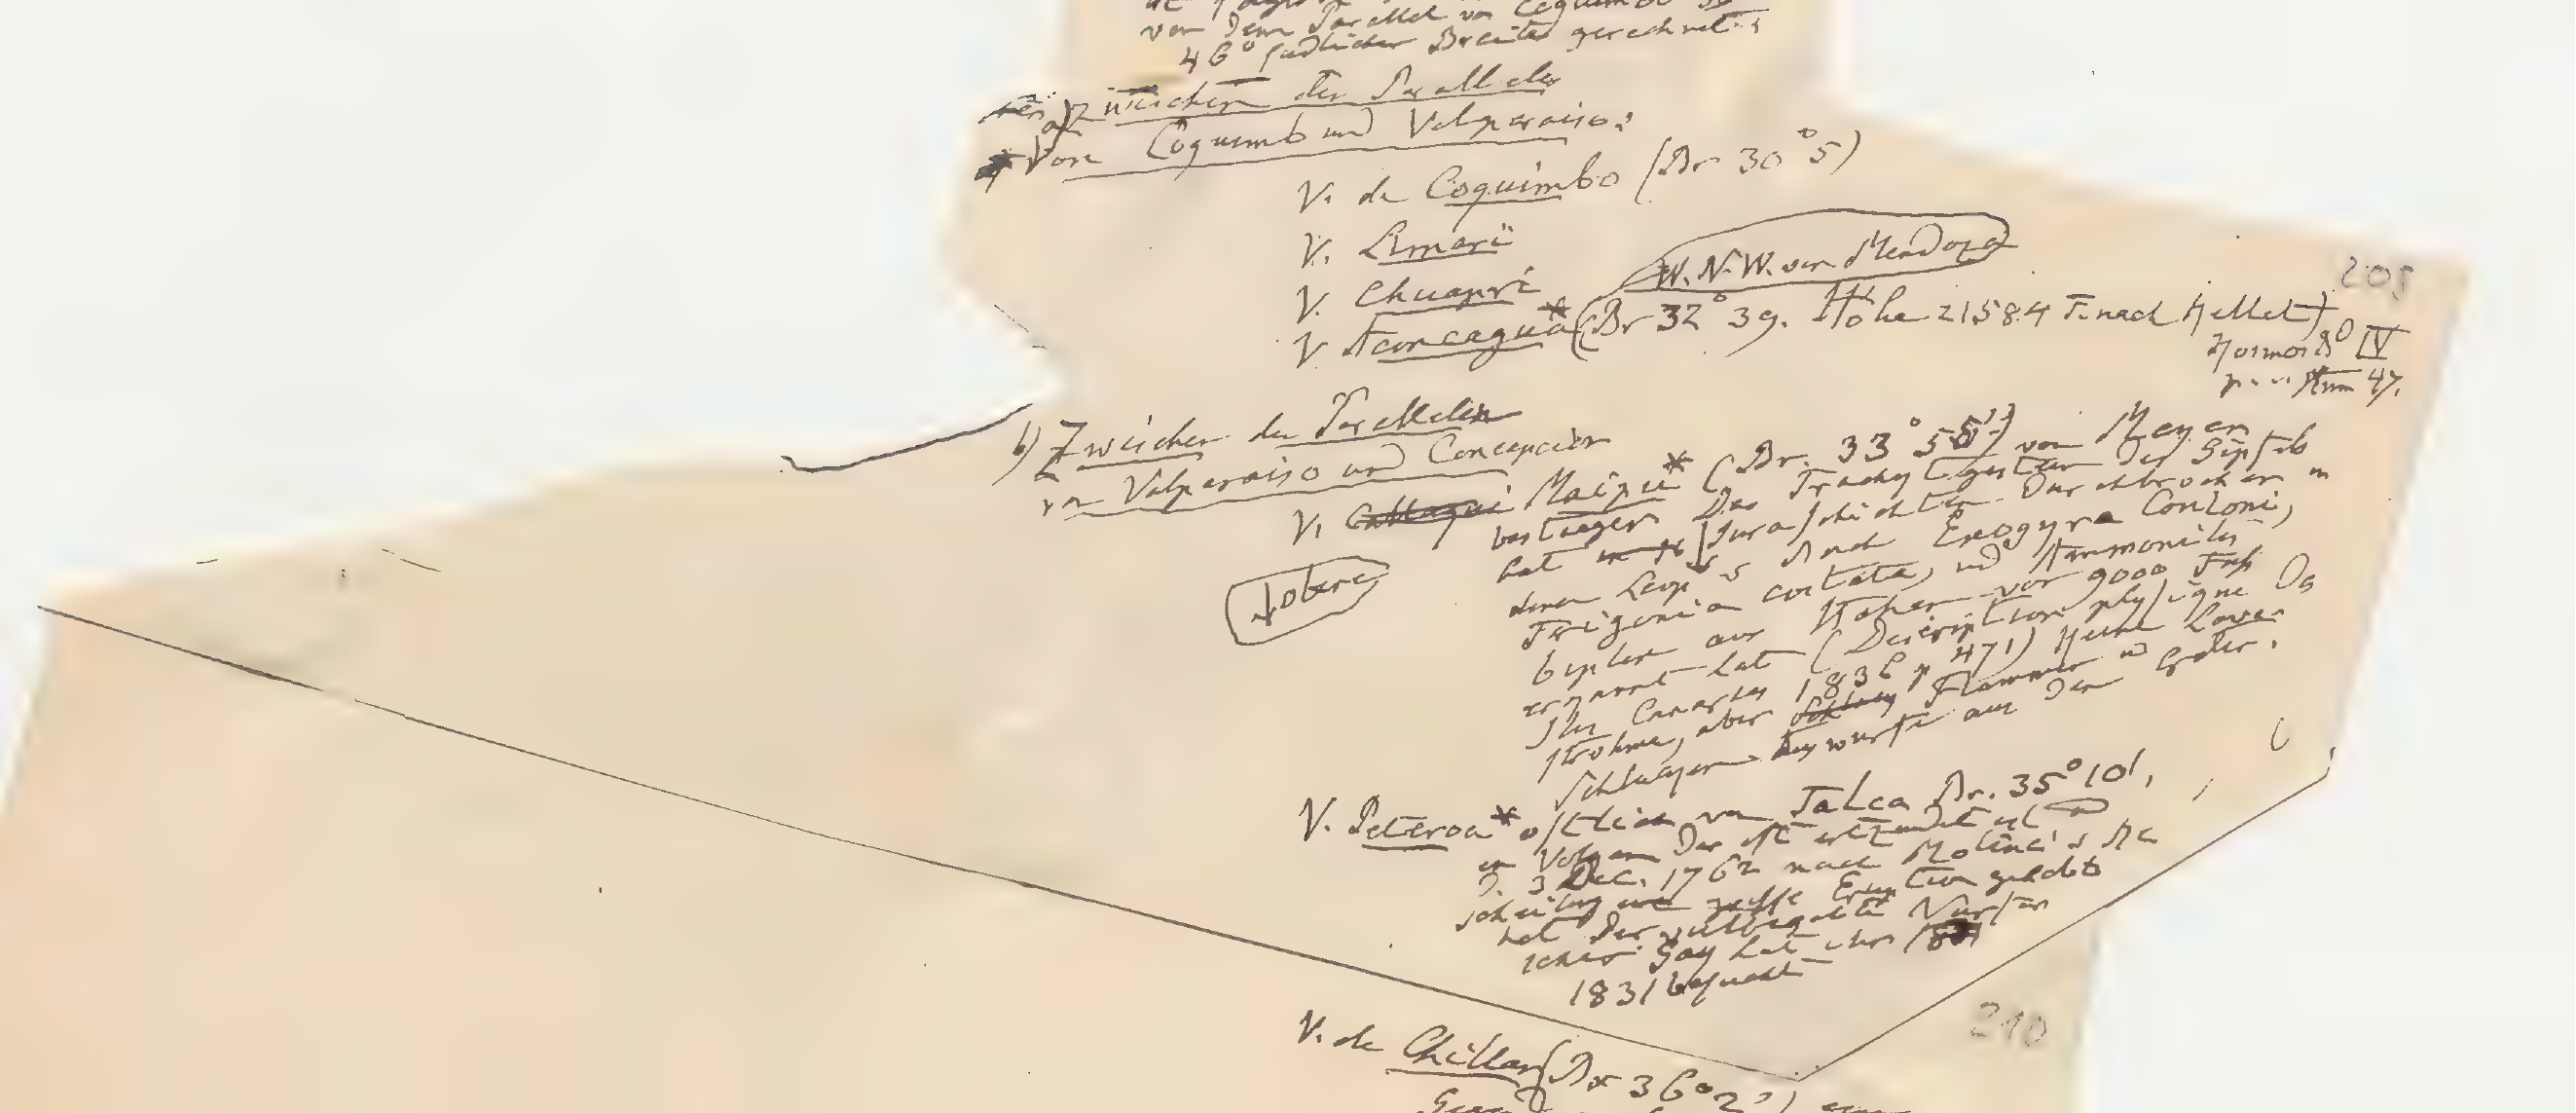 von dem Parallel von Coquimbo bis
46° südlicher Breite gerechnet:
a) Zwischen den Parallelen
Von Coquimbo und Valparaiso:
V. de Coquimbo (Br 30° 5)
V. Limari
W.N.W. von Mendoza
V. Chuapri
V Aconcagua* (Br 32° 39. Höhe 21584 F. nach Kellet)
Kosmos Bd IV
Anm 47.
b) Zwischen den Parallelen
von Valparaiso und Concepcion
V. Maipu* (Br. 33° 53') von Meyen
bestiegen Das Trachytgestein des Gipfels
hat Juraschichten durchbrochen in
denen Leop v Buch Exogyra Couloni,
Trigonia costata, und Ammonites
biplex aus Höhen von 9000 Fuß
erkannt hat (Description physique des
Iles Canaries 1836 p 471) Keine Lava-
ströhme, aber Flammen und
Schlacken Auswürfe aus dem Crater.
oben
V. Peteroa* östlich von Talca Br. 35° 10',
ein Vulkan der oft entzündet ist und
d. 3 Dec. 1762 nach Molina's Be
schreibung eine grosse Eruption gehabt
hat Der vielbegabte Naturfor
scher Gay hat ihn
1831 besucht
V. de Chillan (Br 36° 2')
205
210